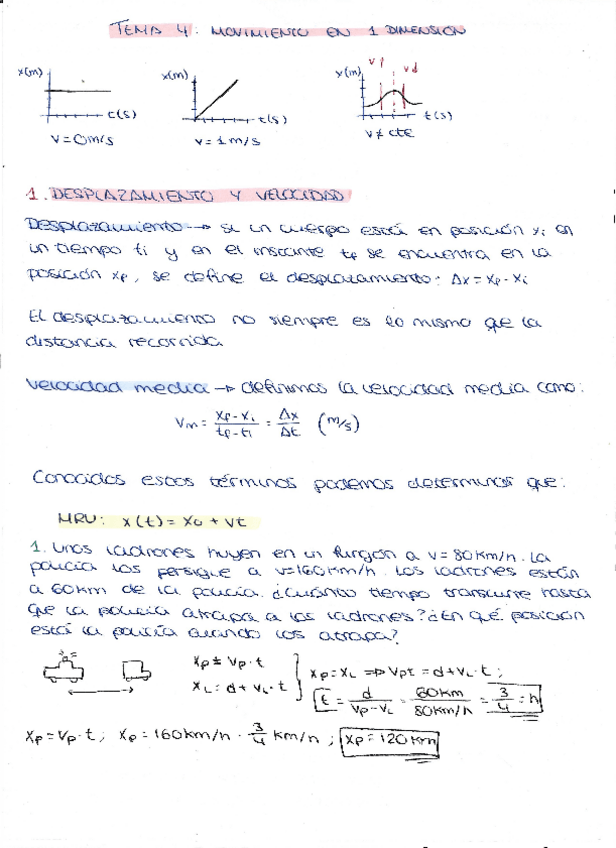 TEMA 4: MOVIMIENTO EN 1 DIMENSION
x(m) x(m) x(m) vf vd
t(s) t(s) t(s)
v=0m/s v=1m/s v≠cte
1. DESPLAZAMIENTO Y VELOCIDAD
Desplazamiento → si un cuerpo está en posición xi en
un tiempo ti y en el instante tf se encuentra en la
posición xf, se define el desplazamiento: Δx = xf - xi
El desplazamiento no siempre es lo mismo que la
distancia recorrida
Velocidad media → definimos la velocidad media como:
Vm = xf-xi / tf-ti = Δx / Δt (m/s)
Conocidos estos términos podemos determinar que:
MRU: x(t) = x0 + vt
1. Unos ladrones huyen en un furgón a v=80km/h. La
policía los persigue a v=160km/h. Los ladrones están
a 60km de la policía. ¿Cuánto tiempo transcurre hasta
que la policía atrapa a los ladrones? ¿En qué posición
está la policía cuando los atrapa?
xp = vp·t
xL = d + vL·t
xp = xL ⇒ vpt = d + vL·t;
t = d / vp-vL = 60km / 80km/h = 3/4 = h
xp = vp·t; xp = 160km/h · 3/4 km/h; xp = 120km